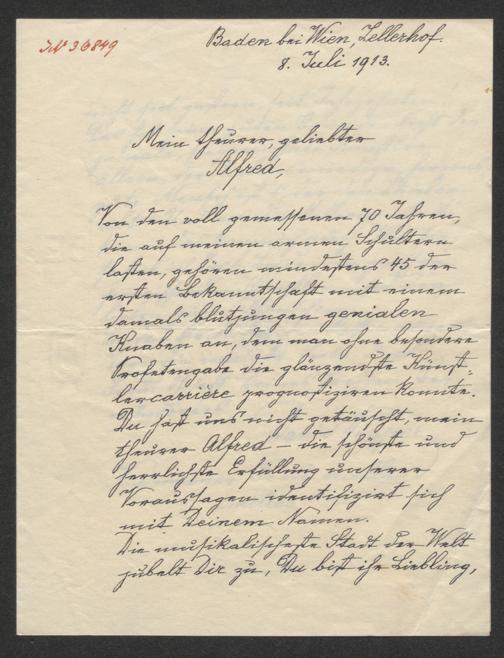 IN 36849
Baden bei Wien, Zellerhof.
8. Juli 1913.
Mein theurer, geliebter
Alfred,
Von den voll gemessenen 70 Jahren,
die auf meinen armen Schultern
lasten, gehören mindestens 45 der
ersten Bekanntschaft mit einem
damals blutjungen genialen
Knaben an, dem man ohne besondere
Profetengabe die glänzendste Künst-
lercarrière prognostiziren konnte.
Du hast uns nicht getäuscht, mein
theurer Alfred – die schönste und
herrlichste Erfüllung unserer
Voraussagen identifizirt sich
mit Deinem Namen.
Die musikalischeste Stadt der Welt
jubelt Dir zu, Du bist ihr Liebling,